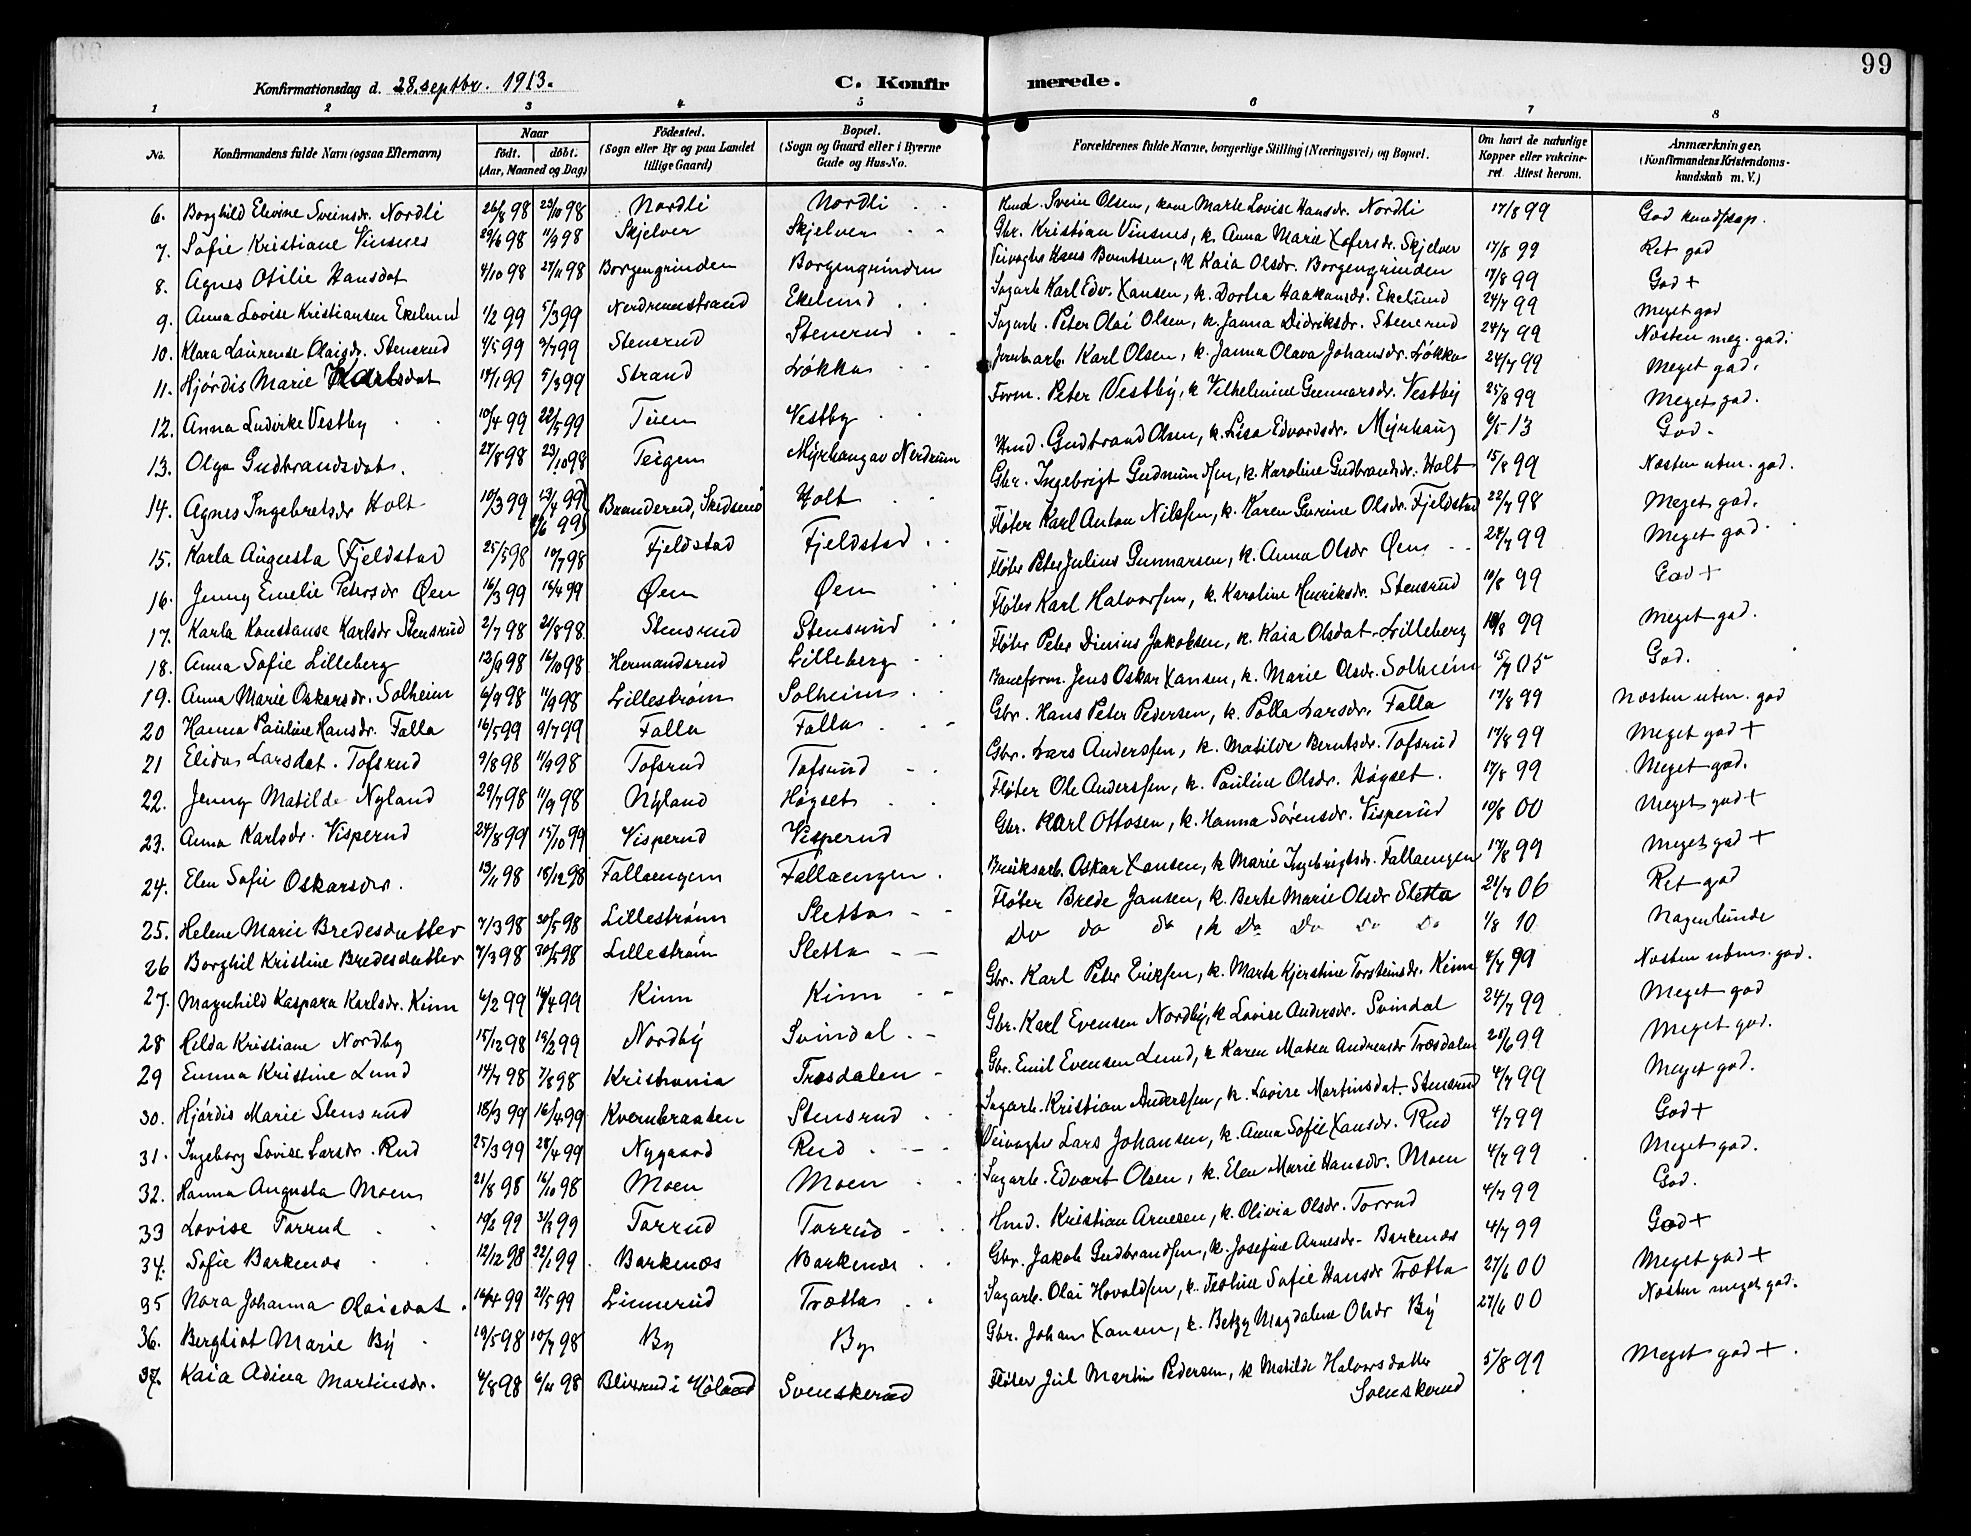 99
Konfirmationsdag d. 28. septbr. 1913.
C. Konfirmerede.
1 2 3 4 5 6 7 8
No. Konfirmandens fulde Navn (ogsaa Efternavn) Naar født. døbt. (Aar, Maaned og Dag) Fødested. (Sogn eller By og paa Landet tillige Gaard) Bopæl. (Sogn og Gaard eller i Byerne Gade og Hus-No. Forældrenes fulde Navne, borgerlige Stilling (Næringsvei) og Bopæl. Om havt de naturlige Kopper eller vakcineret Attest herom. Anmærkninger. (Konfirmandens Kristendomskundskab m. V.)
6. Borghild Elevine Sveinsdr. Nordli 26/8 98 23/10 98 Nordli Nordli Hmd. Svein Olsen, kone Marte Lovise Hansdr. Nordli 17/8 99 God kundskap.
7. Sofie Kristiane Vinsnes 29/6 98 11/9 98 Skjelver Skjelver Gbr. Kristian Vinsnes, k. Anna Marie Xofersdr. Skjelver 17/8 99 Ret god
8. Agnes Otilie Hansdat 4/10 98 27/11 98 Borgengrinden Borgengrinden Veivogter Hans Berntsen, k Kaia Olsdr. Borgengrinden 17/8 99 God +
9. Anna Lovise Kristiansen Ekelund 1/2 99 5/3 99 Nerdrumstrand Ekelund Sagarb Karl Edv. Xansen, k. Dorthea Haakonsdr. Ekelund 24/7 99 Meget god
10. Klara Laurense Olaisdr. Stensrud 4/5 99 9/7 99 Stensrud Stenerud Sagarb. Peter Olai Olsen, k. Janna Didriksdr. Stenerud 24/7 99 Næsten meg. god.
11. Hjørdis Marie Karlsdat 14/1 99 5/3 99 Strand Løkka Jernb.arb. Karl Olsen, k. Janna Olava Johansdr. Løkka 24/7 99 Meget god.
12. Anna Ludvike Vestby 10/4 99 22/5 99 Tuen Vestby Form. Peter Vestby, k. Vilhelmine Gunnarsdr. Vestby 25/8 99 Meget god.
13. Olga Gudbrandsdat. 27/8 98 23/10 98 Teigen Myrhaug av Nerdrum Hmd. Gudbrand Olsen, k. Lisa Edvardsdr. Myrhaug 6/5 13 God.
14. Agnes Ingebretsdr Holt 10/3 99 13/4 99 Branderud, Skedsmo Holt Gbr. Ingebrigt Gudmundsen, k. Karoline Gudbrandsdr. Holt 15/8 99 Næsten utm. god.
15. Karla Augusta Fjeldstad 25/5 98 10/7 98 Fjeldstad Fjeldstad Fløter Karl Anton Nilssen, k. Karen Gurine Olsdr. Fjeldstad 22/7 98 Meget god.
16. Jenny Emelie Petersdr Øen 16/3 99 16/4 99 Øen Øen Fløter Peter Julius Gunnarsen, k. Anna Olsdr Øen 24/7 99 Meget god
17. Karla Konstanse Karlsdr Stensrud 2/7 98 21/8 98. Stensrud Stensrud Fløter Karl Halvorsen, k. Karoline Henriksdr. Stensrud 10/8 99 God +
18. Anna Sofie Lilleberg 12/9 98 16/10 98 Hermandsrud Lilleberg Fløter Peter Dinius Jakobsen, k. Kaia Olsdat. Lilleberg 10/8 99 Meget god.
19. Anna Marie Oskarsdr. Solheim 6/9 98 11/9 98 Lillestrøm Solheim Baneform. Jens Oskar Xansen, k. Marie Olsdr. Solheim 15/7 05 God.
20 Hanna Pauline Hansdr. Falla 16/5 99 9/7 99 Falla Falla Gbr. Hans Peter Pedersen, k. Polla Larsdr. Falla 17/8 99 Næsten utm. god
21 Elida Larsdat. Tofsrud 9/8 98 11/9 98 Tofsrud Tofsrud Gbr. Lars Anderssen, k. Matilde Berntsdr. Tofsrud 17/8 99 Meget god +
22. Jenny Matilde Nyland 29/7 98 11/9 98 Nyland Høgset Fløter Ole Anderssen, k. Pauline Olsdr. Høgset. 17/8 99 Meget god.
23. Anna Karlsdr. Visperud 24/8 99 15/10 99 Visperud Visperud Gbr. Karl Ottosen, k. Hanna Sørensdr. Visperud 10/8 00 Meget god +
24. Elen Sofie Oskarsdr. 13/11 98 18/12 98 Fallaengen Fallaengen Bruksarb. Oskar Xansen, k Marie Ingebrigtsdr. Fallaengen 17/8 99 Meget god +
25. Helene Marie Bredesdatter 7/3 98 30/5 98 Lillestrøm Sletta Fløter Brede Jansen, k. Berte Marie Olsdr Sletta 21/7 06 Ret god
26 Borghil Kristine Bredesdatter 7/3 98 30/5 98 Lillestrøm Sletta Do do do, k Do Do Do Do 1/8 10 Nogenlunde
27. Magnhild Kaspara Karlsdr. Kinn 6/2 99 16/4 99 Kinn Kinn Gbr. Karl Peter Eriksen, k. Marte Kjerstine Torsteinsdr. Kinn 4/7 99 Næsten utm. god.
28 Helda Kristiane Nordby 15/12 98 19/2 99 Nordby Svindal Gbr. Karl Evensen Nordby, k Lovise Andersdr. Svindal 24/7 99 Meget god
29 Emma Kristine Lund 14/7 98 7/8 98 Kristiania Træsdalen Gbr. Emil Evensen Lund, k Karen Matea Andreasdr Træsdalen 28/6 99 Meget god.
30. Hjørdis Marie Stensrud 18/3 99 16/4 99 Kvernbraaten Stensrud Sagarb. Kristian Anderssen, k. Lovise Martinsdat. Stensrud 4/7 99 Meget god.
31. Ingeborg Lovise Larsdr. Rud 25/3 99 28/4 99 Nygaard Rud Veivogter Lars Johansen, k. Anna Sofie Xansdr. Rud 4/7 99 God +
32. Hanna Augusta Moen 21/8 98 16/10 98 Moen Moen Sagarb. Edvart Olsen, k. Elen Marie Hansdr. Moen 4/7 99 Meget god.
33 Lovise Torrud 19/2 99 31/3 99 Torrud Torrud Hmd. Kristian Arnesen, k. Olivia Olsdr. Torrud 4/7 99 God.
34. Sofie Barkenæs 12/12 98 22/1 99 Barkenæs Barkenæs Gbr. Jakob Gudbrandsen, k. Josefine Arnesdr. Barkenæs 4/7 99 God +
35 Nora Johanna Olaisdat. 16/4 99 21/5 99 Linnerud Trætta Sagarb. Olai Hovaldsen, k. Teoline Sofie Hansdr Trætta 27/6 00 Meget god +
36. Bergliot Marie By 19/5 98 10/7 98 By By Gbr. Johan Xansen, k. Betzy Magdalene Olsdr By 27/6 00 Næsten meget god.
37. Kaia Adina Martinsdr. 4/8 98 6/11 98 Bliksrud i Høland Svenskerud Fløter Jul Martin Pedersen, k Matilde Halvorsdatter Svenskerud 5/8 99 Meget god +.